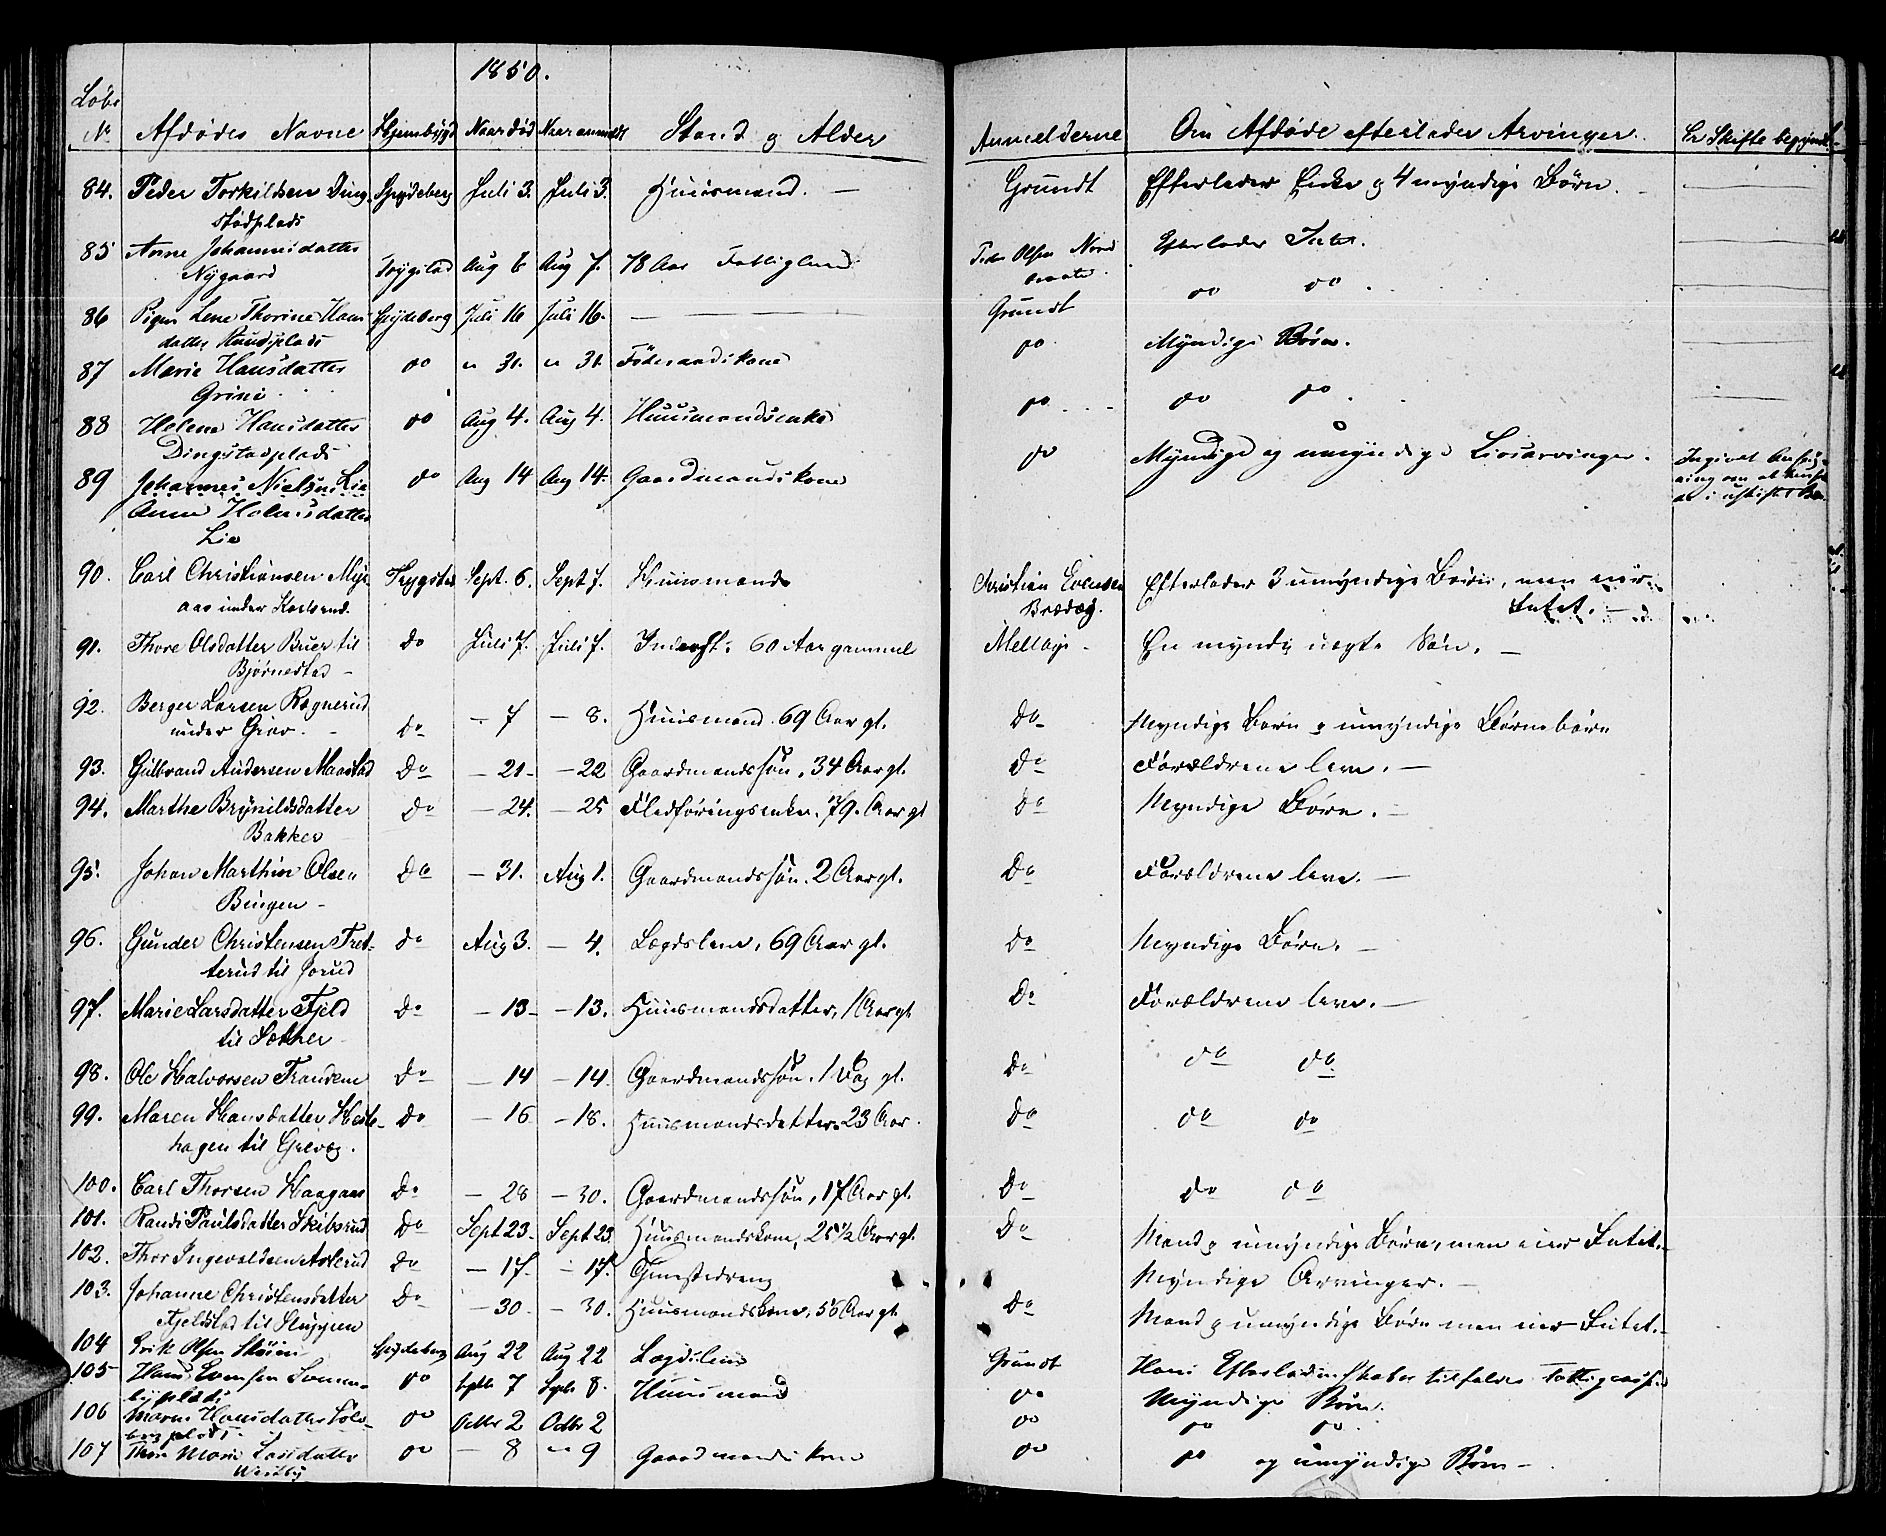 1850.
Løbe No Afdødes Navne Hjembygd Naar død Naar anmeldt Stand og Alder Anmelderne Om Afdøde efterlader Arvinger. Er Skifte begyndt
84. Peder Torkildsen Ding- Spydeberg Juli 3. Juli 3. Huusmand. — Grundt Efterlader Enke og 4 myndige Børn. —
stadplads
85 Anne Johannesdatter Peder Olsen Nord Efterlader Intet.
Nygaard Trygstad Aug 6 Aug 7. 78 Aar Fattiglem
86 Pigen Lene Thorine Hans Spydeberg Juli 16 Juli 16. — Grundt do do
datter Kundsplads
87 Marie Hansdatter do " 31. " 31. Føderaadskone do Myndige Børn.
Grini
88 Helene Hansdatter do Aug 4. Aug 4. Huusmandsenke do do do
Dingstadplads
89 Johannes Nielsen Lie do Aug 14 Aug 14. Gaardmandskone do Myndige og umyndige Livsarvinger. Ingivet
Anne Holmsdatter
Lie
90. Carl Christiansen Myr- Trygstad Sept. 6. Sept 7. Huusmand Christian Evensen Efterlader 3 umyndige Børn, men eier
aas under Karlsrud. Brødeg. Intet. —
91. Thore Olsdatter Bruer til do Juli 7. Juli 7. Inderst. 60 Aar gammel Melleby. En myndig uægte Søn. —
Bjørnestad —
92. Berger Larsen Ragnerud
under Grav. — do — 7 — 8. Huusmand. 69 Aar gl. do Myndige Børn og umyndige Børnebørn
93. Gulbrand Andersen Maastad do — 21 — 22 Gaardmandssøn, 34 Aar gl. do Forældrene leve. —
94. Marthe Brynildsdatter do — 24. — 25 Fledføringsenke, 79 Aar gl do Myndige Børn. —
Bakker
95. Johan Marthin Olsen do — 31. Aug 1. Gaardmandssøn. 2 Aar gl. do Forældrene leve. —
Bingen —
96. Gunder Christensen Tret- do Aug 3. — 4. Lægdslem, 69 Aar gl. do Myndige Børn. —
terud til Jorud
97. Marie Larsdatter Fjeld do — 13 — 13. Huusmandsdatter, 1 Aar gl do Forældrene leve. —
til Sother
98. Ole Halvorsen Frandem do — 14 — 14. Gaardmandssøn. 1 Dag gl. do do do
99. Maren Hansdatter Heste- do — 16 — 18. Huusmandsdatter 23 Aar. do do do
hagen til Greveg.
100. Carl Thorsen Haagaas do — 28 — 30. Gaardmandssøn, 17 Aar gl. do do do
101. Randi Paulsdatter Skibsrud do Sept 23. Sept 23 Huusmandskone, 25 1/2 Aar gl. do Mand og umyndige Børn, men eier Intet. —
102. Thor Ingevaldsen Asterud do — 17. — 17. Tjenestedreng Myndige Arvinger. —
103. Johanne Christensdatter do — 30 — 30. Huusmandskone, 56 Aar gl. do Mand og umyndige Børn men eier Intet. —
Fjeldstad til Sluppen
104 Erik Olsen Skøien Spydeberg Aug 22 Aug 22 Lægdslem Grundt Hans Efterladenskaber tilfalder Fattigcassen
105 Hans Evensen Sonsen- do Septb 7 Septb 8. Huusmand do Myndige Børn.
byplads
106 Maren Hansdatter Sol- do Octbr 2 Octbr 2 do do do
berg plads
107 Thore Marie Larsdatter do — 8 — 9 Gaardmandskone do do og umyndige Børn —
Westby